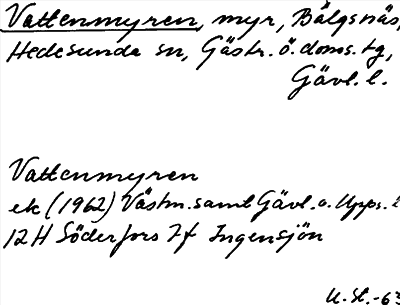 Vattenmyren, myr, Bälgsnäs,
Hedesunda sn, Gästr. ö. doms. tg,
Gävl. l.
Vattenmyren
ek (1962) Västm. samt Gävl. o. Upps. l
12 H Söderfors 7f Ingensjön
U. St. -63